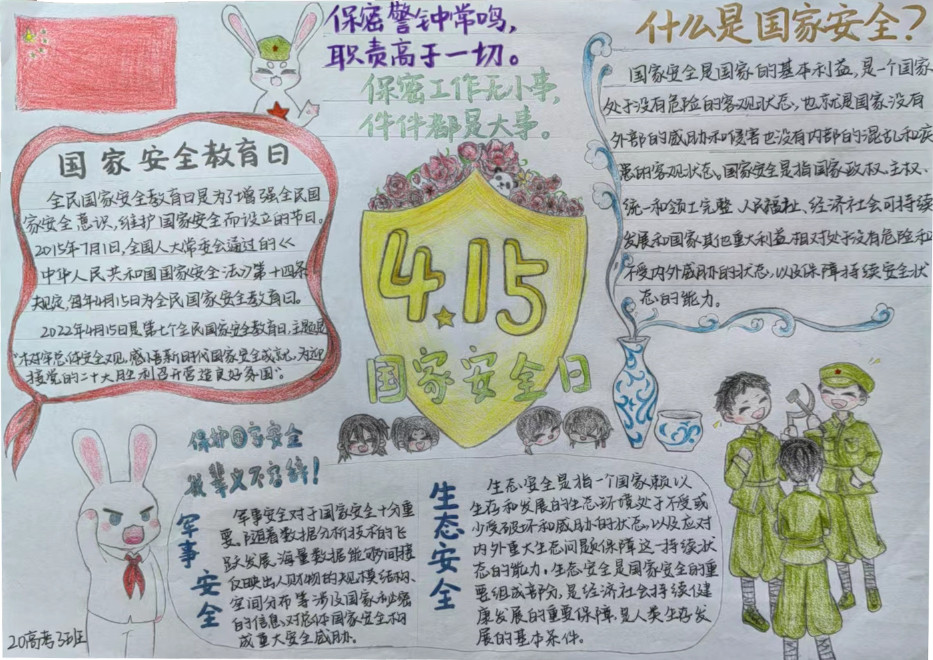 保密警钟常鸣,
职责高于一切。
保密工作无小事,
件件都是大事。
什么是国家安全?
国家安全是国家的基本利益,是一个国家
处于没有危险的客观状态,也就是国家没有
外部的威胁和侵害也没有内部的混乱和疾
患的客观状态。国家安全是指国家政权、主权、
统一和领土完整、人民福祉、经济社会可持续
发展和国家其他重大利益相对处于没有危险和
不受内外威胁的状态,以及保障持续安全状
态的能力。
国家安全教育日
全民国家安全教育日是为了增强全民国
家安全意识,维护国家安全而设立的节日。
2015年7月1日,全国人大常委会通过的《
中华人民共和国国家安全法》第十四条
规定,每年4月15日为全民国家安全教育日。
2022年4月15日是第七个全民国家安全教育日,主题是
"树牢总体安全观,感悟新时代国家安全成就,为迎
接党的二十大胜利召开营造良好氛围"。
4.15
国家安全日
保护国家安全
我辈义不容辞!
军事安全
军事安全对于国家安全十分重
要,随着数据分析技术的飞
跃发展,海量数据能够间接
反映出人财物的规模结构、
空间分布等涉及国家秘密
的信息,对总体国家安全构
成重大安全威胁。
生态安全
生态安全是指一个国家赖以
生存和发展的生态环境处于不受或
少受破坏和威胁的状态,以及应对
内外重大生态问题保障这一持续状
态的能力。生态安全是国家安全的重
要组成部分,是经济社会持续健
康发展的重要保障,是人类生存发
展的基本条件。
20高考3班